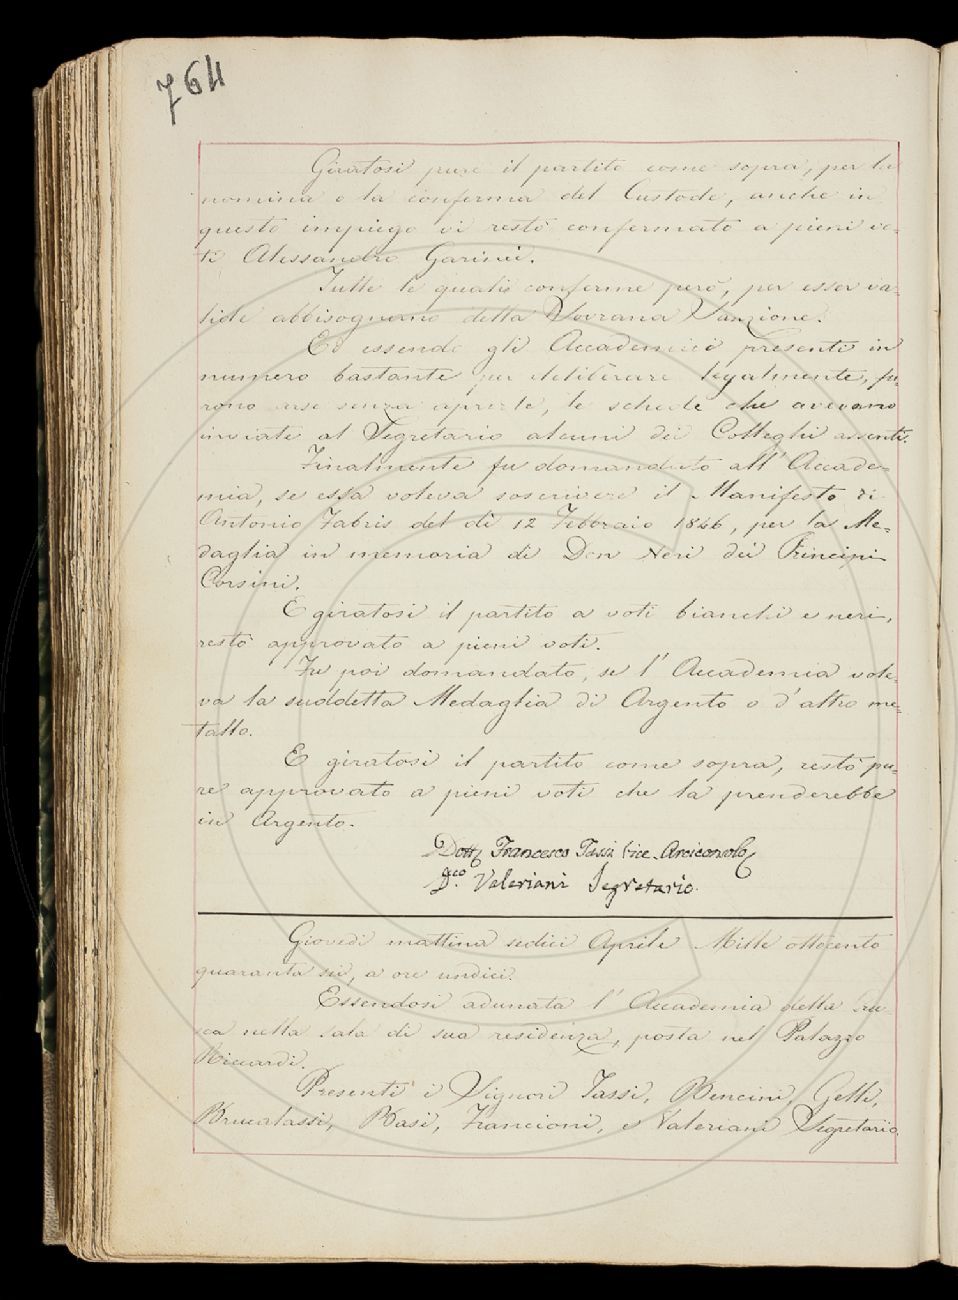 764
Giratosi pure il partito come sopra, per la
nomina o la conferma del Custode, anche in
questo impiego vi restò confermato a pieni vo-
ti Alessandro Garinei.
Tutte le quali conferme però, per esser va-
lide abbisognano della Sovrana Sanzione.
Ed essendo gli Accademici presenti in
numero bastante per deliberare legalmente, fu-
rono arse senza aprirle, le schede che avevano
inviate al Segretario alcuni dei Colleghi assenti.
Finalmente fu domandato all' Accade-
mia, se essa voleva soscrivere il Manifesto di
Antonio Fabris del dì 12 Febbraio 1846, per la Me-
daglia in memoria di Don Neri dei Principi
Corsini.
E giratosi il partito a voti bianchi e neri,
restò approvato a pieni voti.
Fu poi domandato, se l' Accademia vole-
va la suddetta Medaglia di Argento o d'altro me-
tallo.
E giratosi il partito come sopra, restò pu-
re approvato a pieni voti che la prenderebbe
in Argento.
Dott. Francesco Tassi Vice-Arciconsolo
D.co Valeriani Segretario.
Giovedì mattina sedici Aprile Mille ottocento
quaranta sei, a ore undici.
Essendosi adunata l' Accademia della Cru-
sca nella Sala di sua residenza, posta nel Palazzo
Riccardi.
Presenti i Signori Tassi, Bencini, Gelli,
Brucalassi, Basi, Francioni, e Valeriani Segretario.